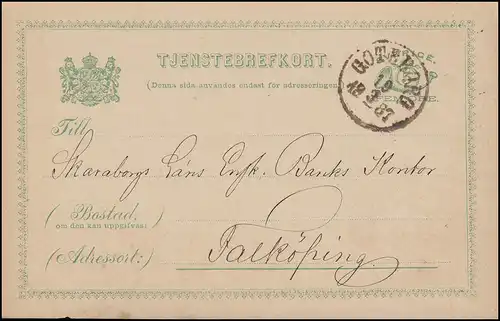 TJENSTEBREFKORT.
(Denna sida användes endast för adresseringen
GÖTEBORG
19
18 3 87
Till
Skaraborgs Läns Ensk. Banks Kontor
(Bostad,
om den kan uppgifvas:)
(Adressort:)
Falköping.